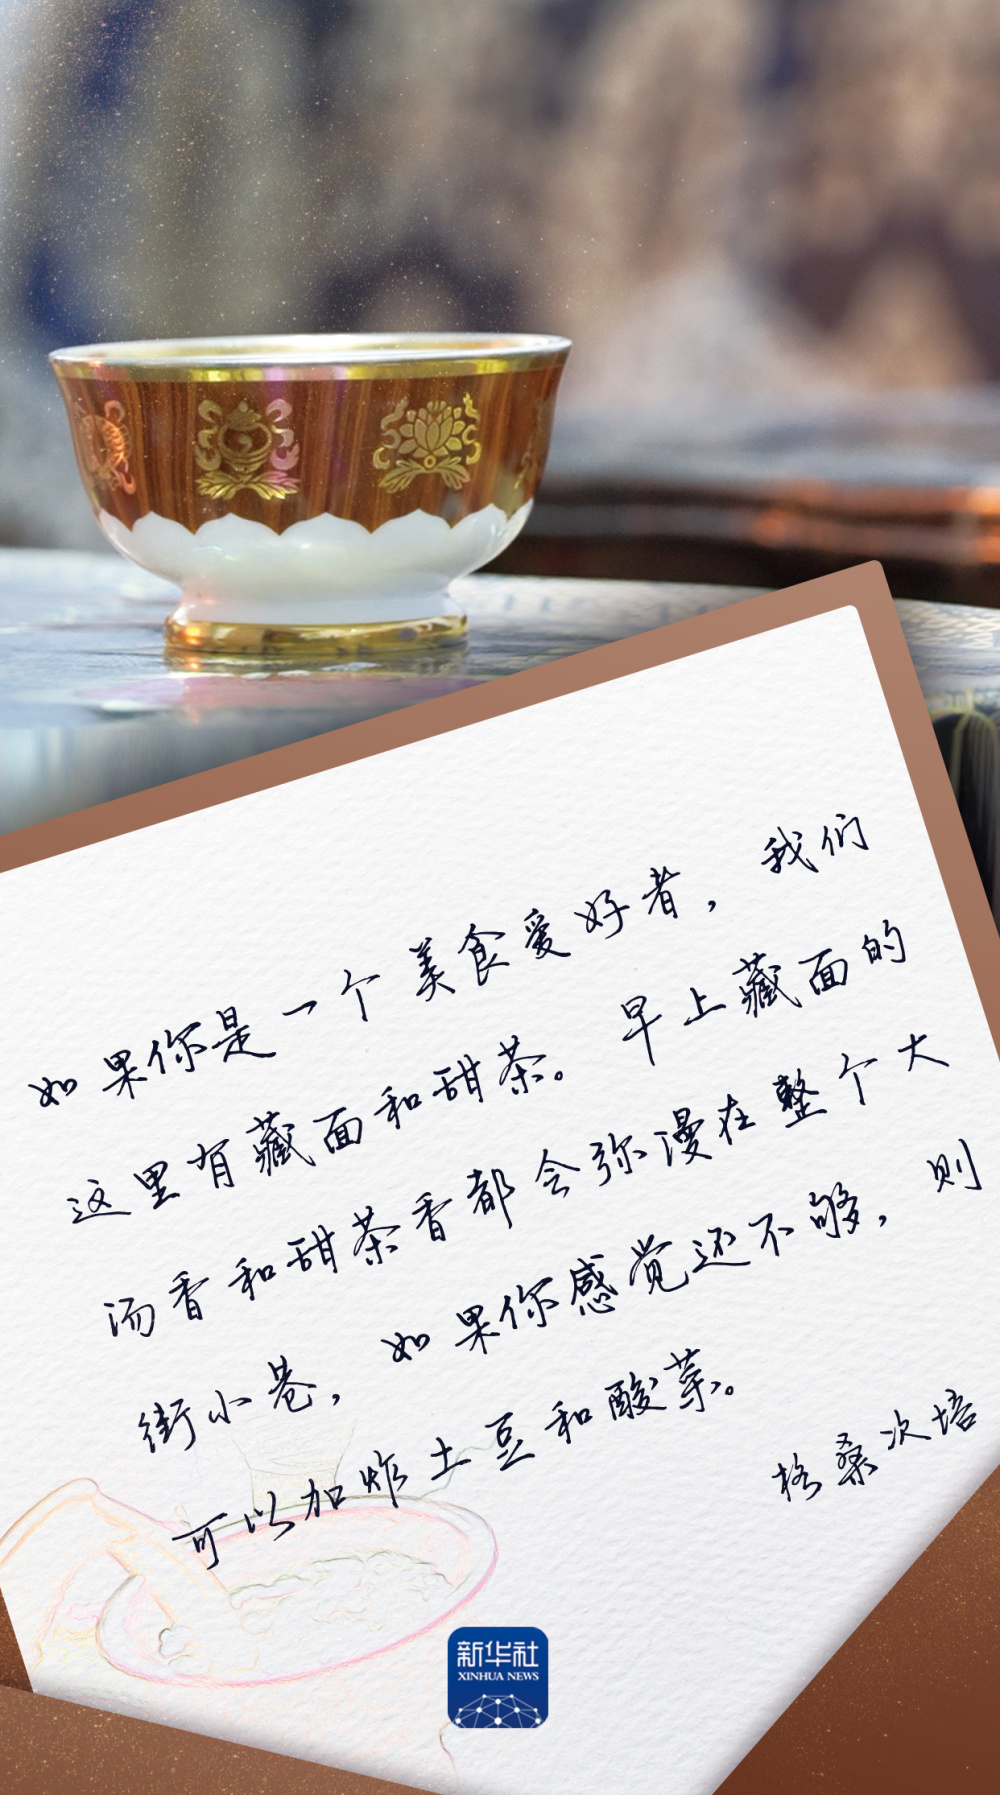 如果你是一个美食爱好者，我们
这里有藏面和甜茶。早上藏面的
汤香和甜茶香都会弥漫在整个大
街小巷，如果你感觉还不够，则
可以加炸土豆和酸菜。
格桑次培
新华社
XINHUA NEWS